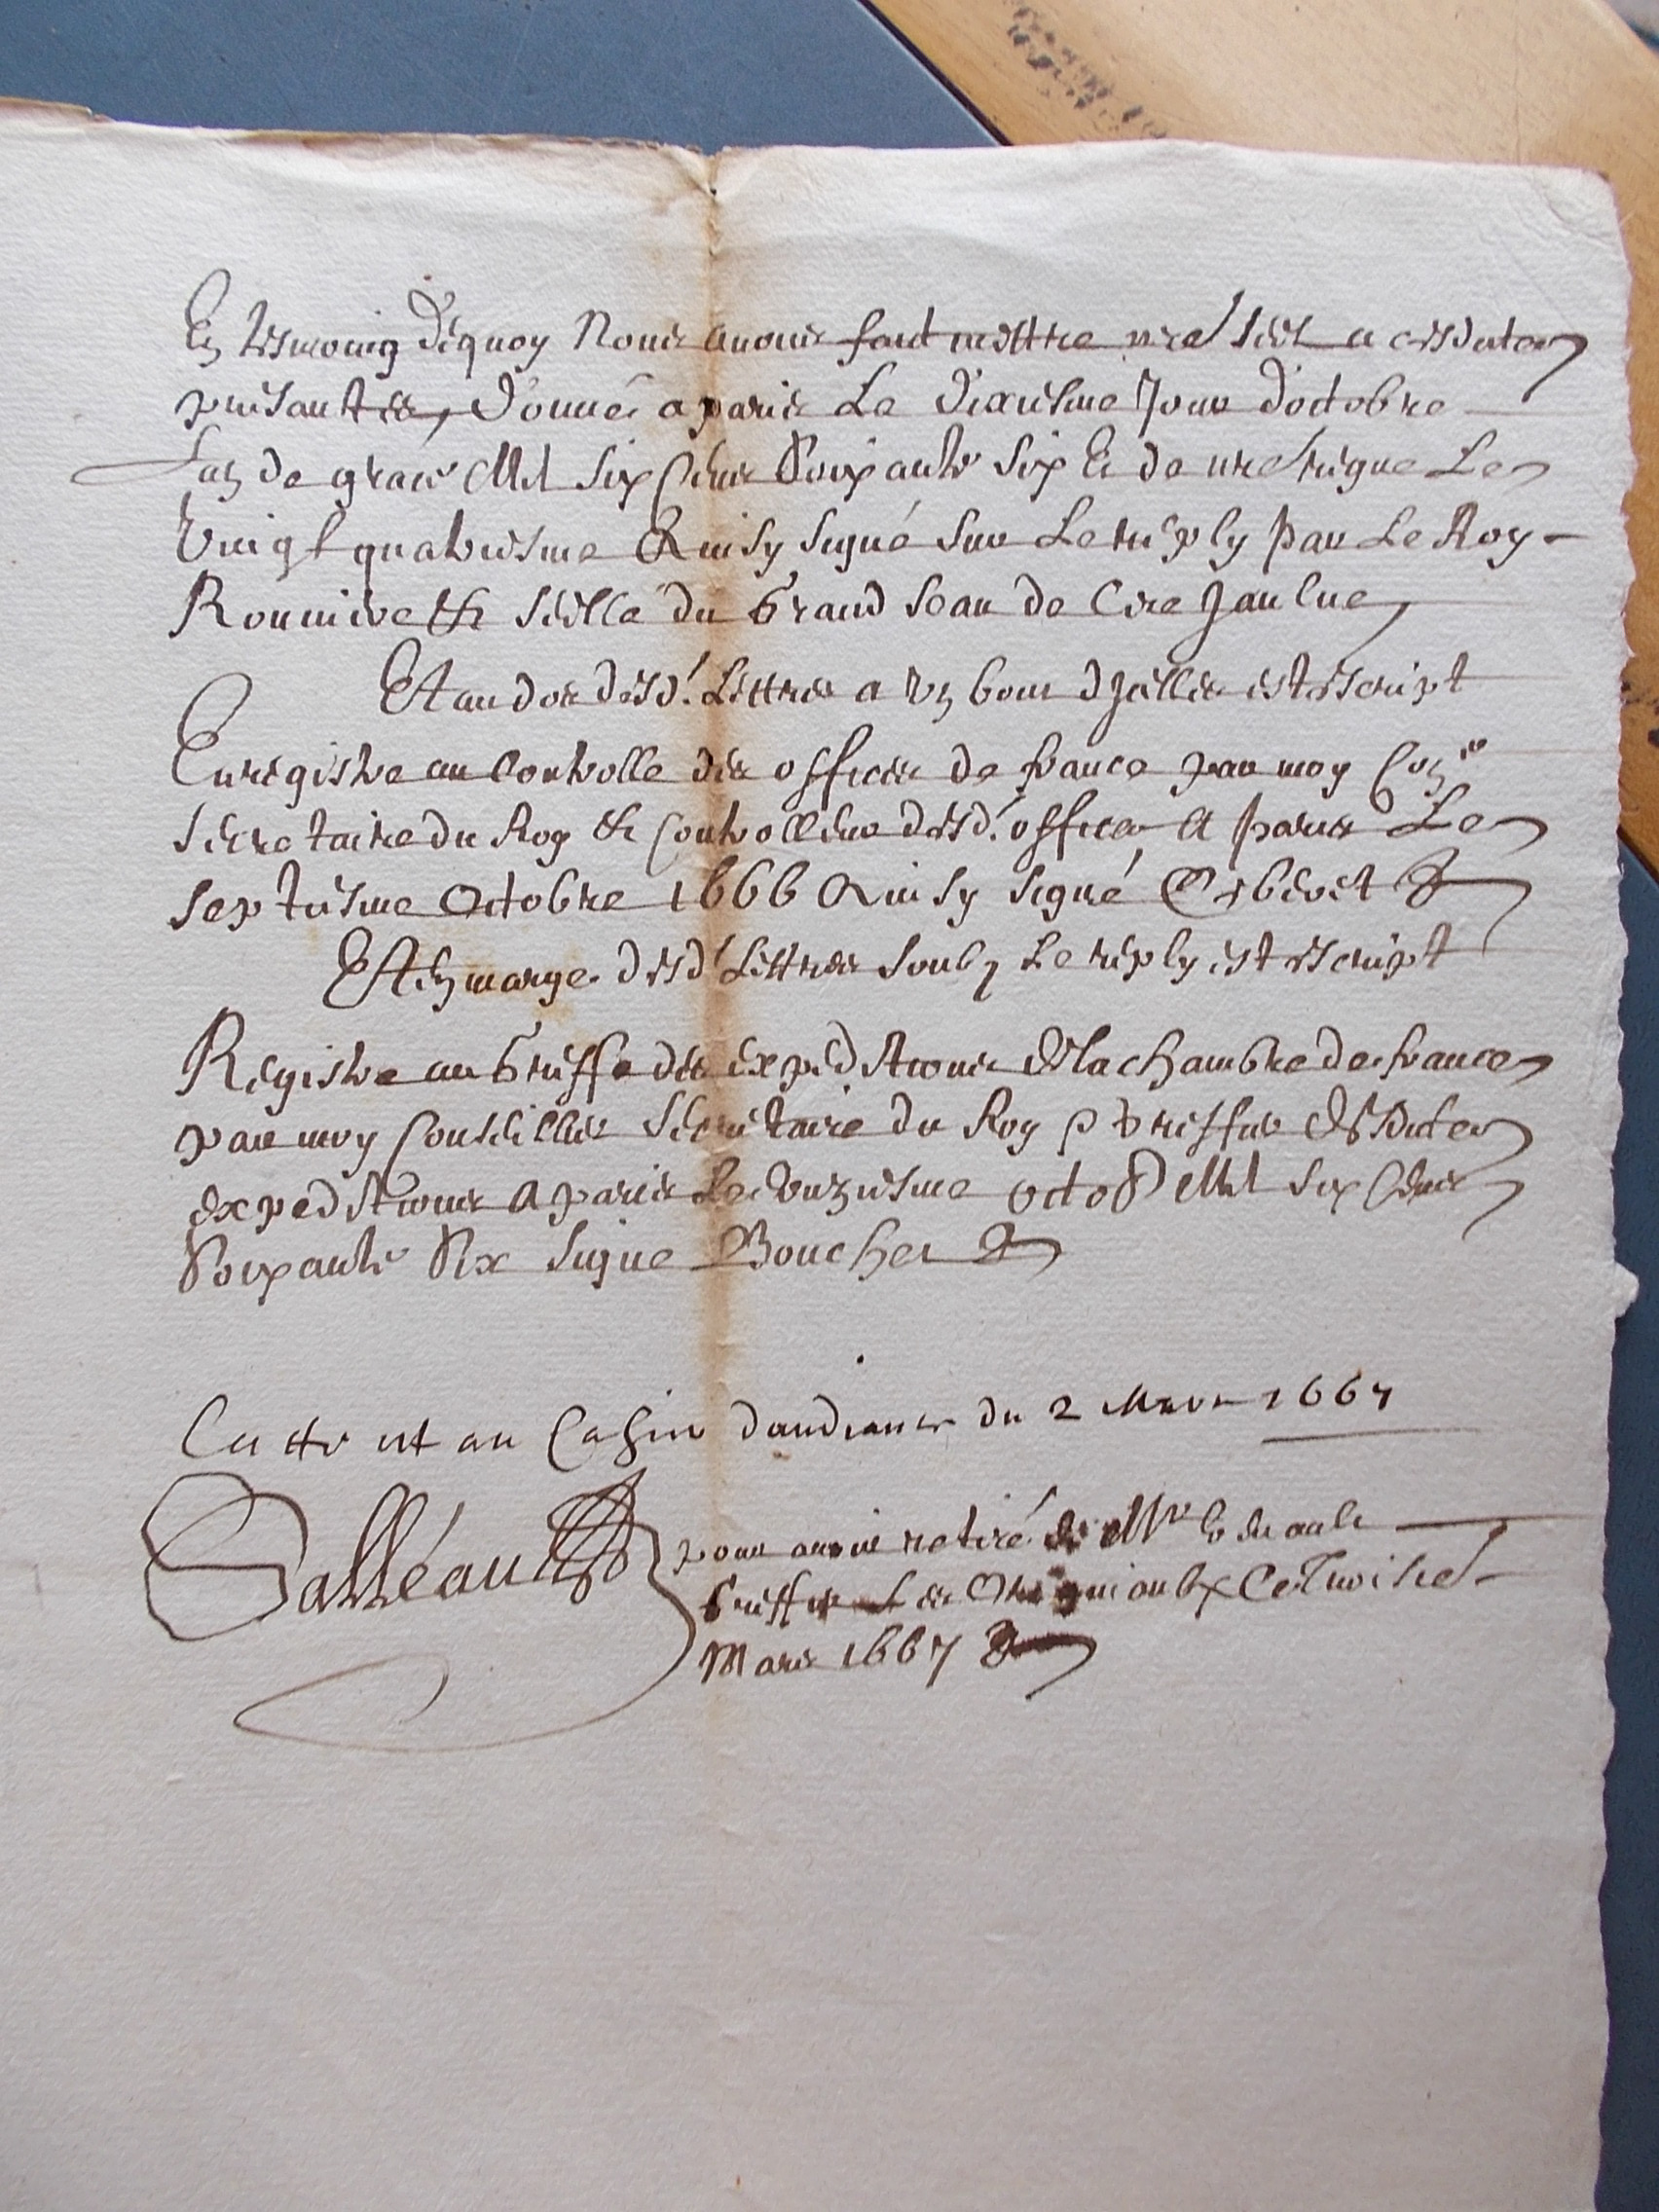 En tesmoing dequoy Nous auons faict mettre nre scel a cesdites
presantes, Donné a paris Le dixiesme Jour d'octobre
Lan de grace Mil six Cens Soixante Six Et de nre reigne Le
Vingt quatriesme Ainsy signé sur Le reply par Le Roy
et scellé du Grand Seau de Cire Jaulne,
Et au dos desd. Lettres a un bout d'jcelles est escript
Enregistre au Controlle des offices de france par moy Con.er
Secretaire du Roy et Controlleur desd. offices A paris Le
septiesme Octobre 1666 Ainsy signé
Et En marge desd Lettres soubz Le reply est escript
Registre au Greffe des Expeditions de la chambre de france
par moy Conseiller Secretaire du Roy Greffier desdites
Expeditions A paris Le Unziesme octob Mil six Cens
Soixante Six signé Boucher
est au Cahier daudiance du 2 Mars 1667
Galléault
pour auoir retiré de Mr
Greffier Les Originaulx Ce Troisie
Mars 1667